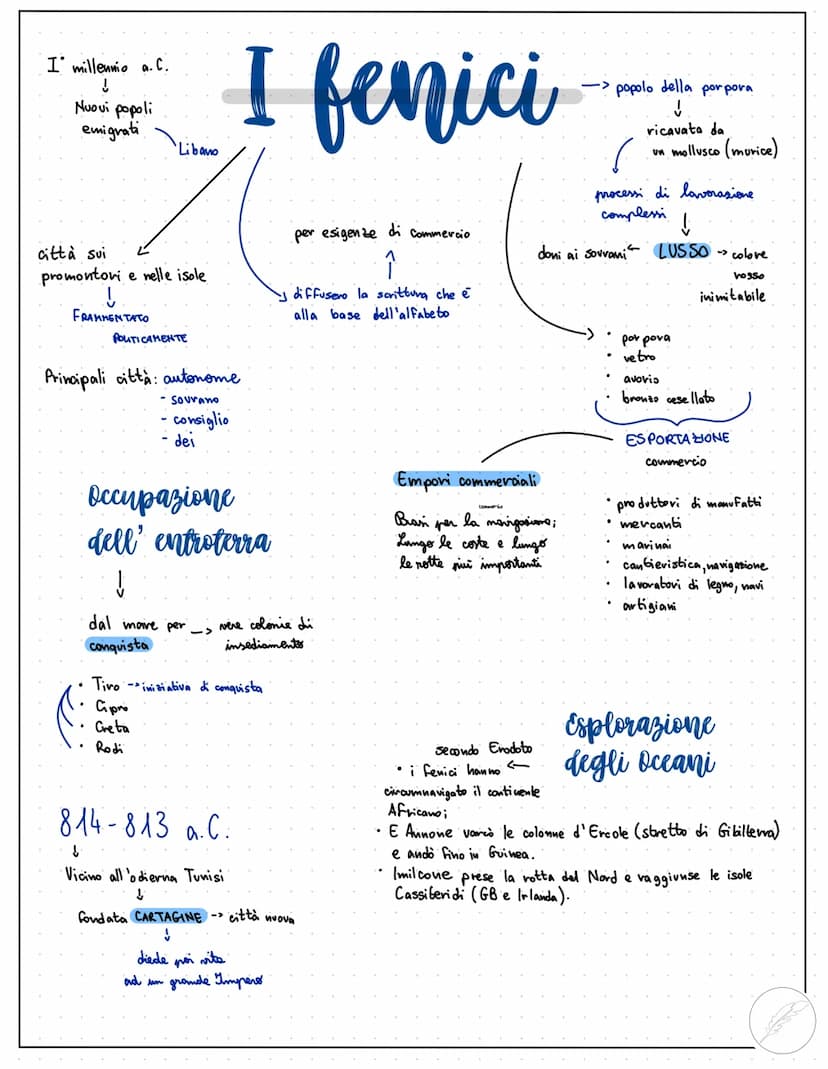 I fenici
I° millennio a.C.
↓
Nuovi popoli
emigrati
Libano
-> popolo della porpora
↓
ricavata da
un mollusco (murice)
processi di lavorazione
complessi
↓
doni ai sovrani ← LUSSO → colore
rosso
inimitabile
città sui
promontori e nelle isole
↓
FRAMMENTATO
POLITICAMENTE
per esigenze di commercio
↑
diffusero la scrittura che è
alla base dell'alfabeto
Principali città: autonome
- sovrano
- consiglio
- dei
• porpora
• vetro
• avorio
• bronzo cesellato
ESPORTAZIONE
commercio
Empori commerciali
commercio
Basi per la navigazione;
Lungo le coste e lungo
le rotte più importanti
• produttori di manufatti
• mercanti
• marinai
• cantieristica, navigazione
• lavoratori di legno, navi
• artigiani
Occupazione
dell' entroterra
↓
dal mare per -> vere colonie di
conquista insediamento
• Tiro -> iniziativa di conquista
• Cipro
• Creta
• Rodi
814-813 a.C.
↓
Vicino all'odierna Tunisi
↓
fondata CARTAGINE -> città nuova
↓
diede poi vita
ad un grande Impero
Esplorazione
degli Oceani
secondo Erodoto
• i fenici hanno ←
circumnavigato il continente
Africano;
• E Annone varcò le colonne d'Ercole (stretto di Gibilterra)
e andò fino in Guinea.
• Imilcone prese la rotta del Nord e raggiunse le isole
Cassiteridi (GB e Irlanda).